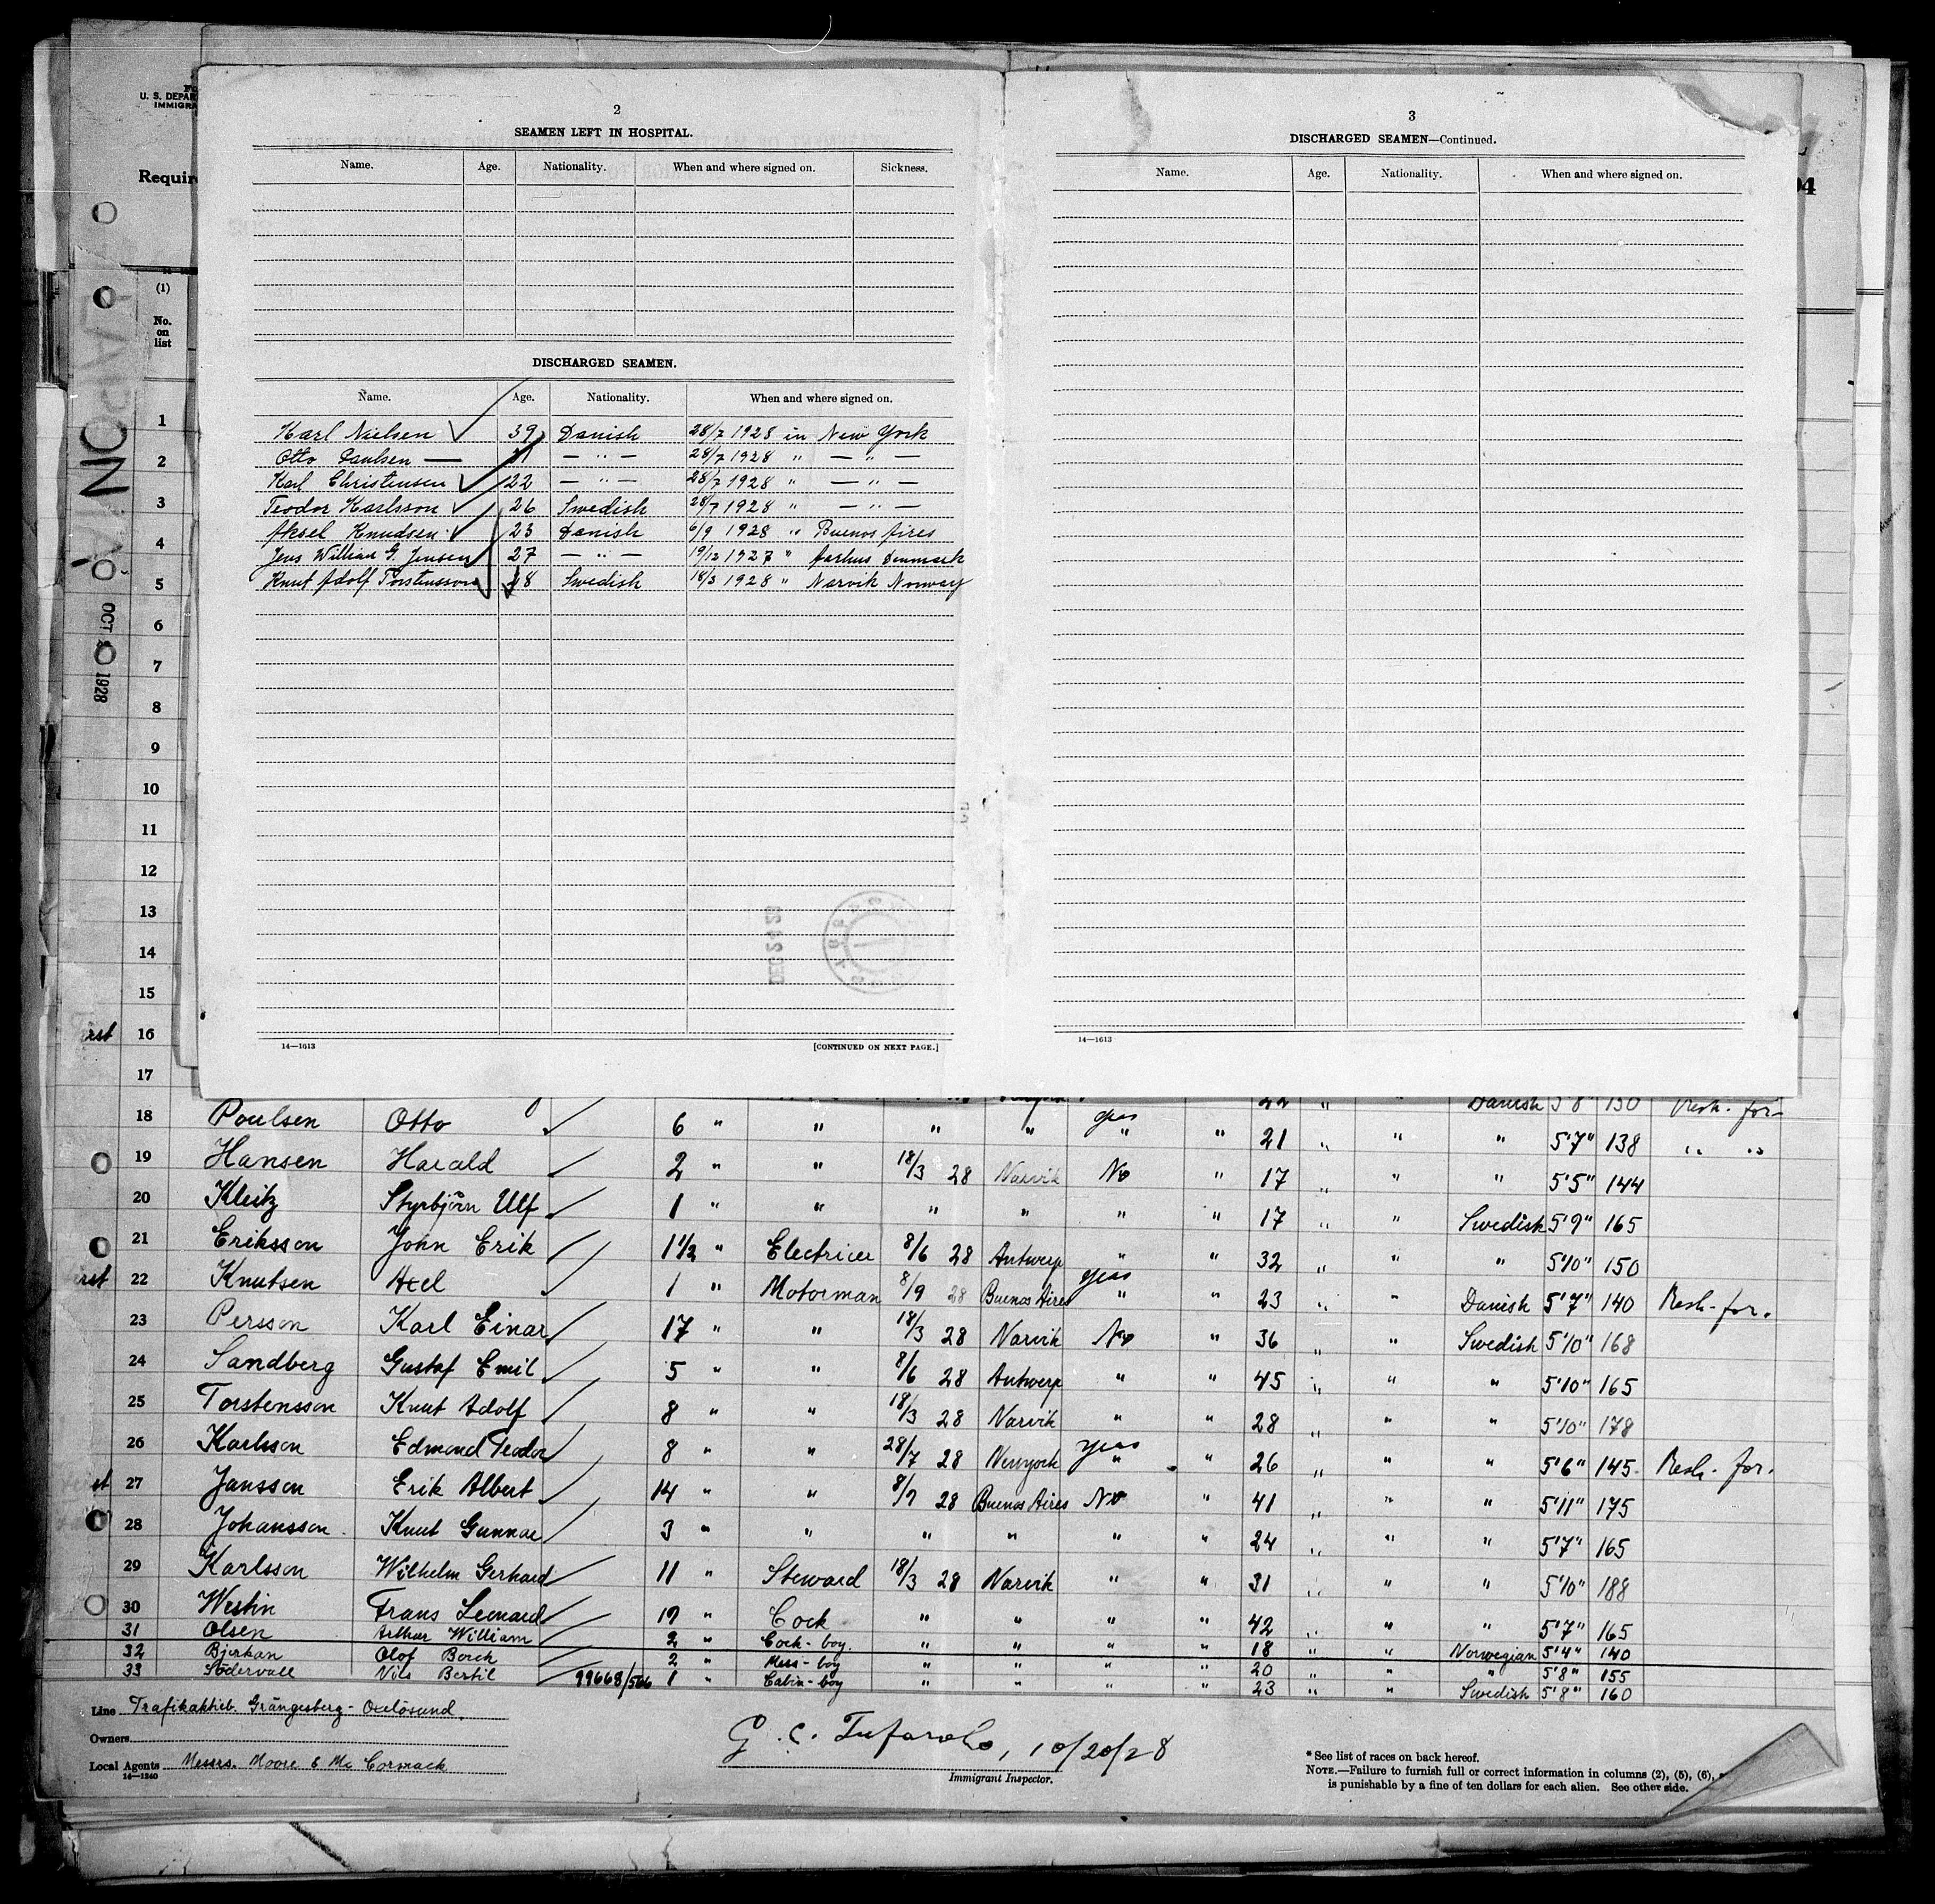 2
SEAMEN LEFT IN HOSPITAL.
Name. Age. Nationality. When and where signed on. Sickness.
DISCHARGED SEAMEN.
Name. Age. Nationality. When and where signed on.
Karl Nielsen 39 Danish 28/7 1928 in New York
Otto Paulsen — — " — 28/7 1928 " — " —
Karl Christensen 22 — " — 28/7 1928 " — " —
Teodor Karlsson 26 Swedish 28/7 1928 " — " —
Aksel Knudsen 23 Danish 6/9 1928 " Buenos Aires
Jens William G. Jensen 27 — " — 19/12 1927 " Aarhus Denmark
Knut Adolf Torstensson 28 Swedish 18/3 1928 " Narvik Norway
14—1613 [CONTINUED ON NEXT PAGE.]
3
DISCHARGED SEAMEN—Continued.
Name. Age. Nationality. When and where signed on.
14—1613
U. S. DEPAR
IMMIGRA
Require
(1)
No.
on
list
OCT 20 1928
1
2
3
4
5
6
7
8
9
10
11
12
13
14
15
16
17
22 " " Danish 5'8" 150 Resh. for.
18 Poulsen Otto 6 " " " " yes " " 21 " " " 5'7" 138 " "
19 Hansen Harald 2 " " 18/3 28 Narvik No " 17 " " " 5'5" 144
20 Kleitz Styrbjörn Ulf 1 " " " " " " 17 " " Swedish 5'9" 165
21 Eriksson John Erik 1½ " Electricer 8/6 28 Antwerp " " 32 " " " 5'10" 150
22 Knutsen Axel 1 " Motorman 8/9 28 Buenos Aires yes " " 23 " " Danish 5'7" 140 Resh-for.
23 Persson Karl Einar 17 " " 18/3 28 Narvik No " 36 " " Swedish 5'10" 168
24 Sandberg Gustaf Emil 5 " " 8/6 28 Antwerp " " 45 " " " 5'10" 165
25 Torstensson Knut Adolf 8 " " 18/3 28 Narvik " " 28 " " " 5'10" 178
26 Karlsson Edmond Teodor 8 " " 28/7 28 Newyork yes " " 26 " " " 5'6" 145 Resh. for.
27 Jansson Erik Albert 14 " " 8/9 28 Buenos Aires No " 41 " " " 5'11" 175
28 Johansson Knut Gunnar 3 " " " " " " 24 " " " 5'7" 165
29 Karlsson Wilhelm Gerhard 11 " Steward 18/3 28 Narvik " " 31 " " " 5'10" 188
30 Westin Frans Leonard 19 " Cock " " " " 42 " " " 5'7" 165
31 Olsen Arthur William 2 " Cock-boy. " " " " 18 " " Norwegian 5'4" 140
32 Bjerkan Olof Borch 2 " Mess-boy " " " " 20 " " " 5'8" 155
33 Södervall Nils Bertil 99668/566 1 " Cabin-boy " " " " 23 " " Swedish 5'8" 160
Line Trafikaktieb. Grängesberg-Oxelösund.
Owners
Local Agents Messrs. Moore & Mc Cormack
14—1240
10/20/28
Immigrant Inspector.
* See list of races on back hereof.
NOTE.—Failure to furnish full or correct information in columns (2), (5), (6),
is punishable by a fine of ten dollars for each alien. See other side.